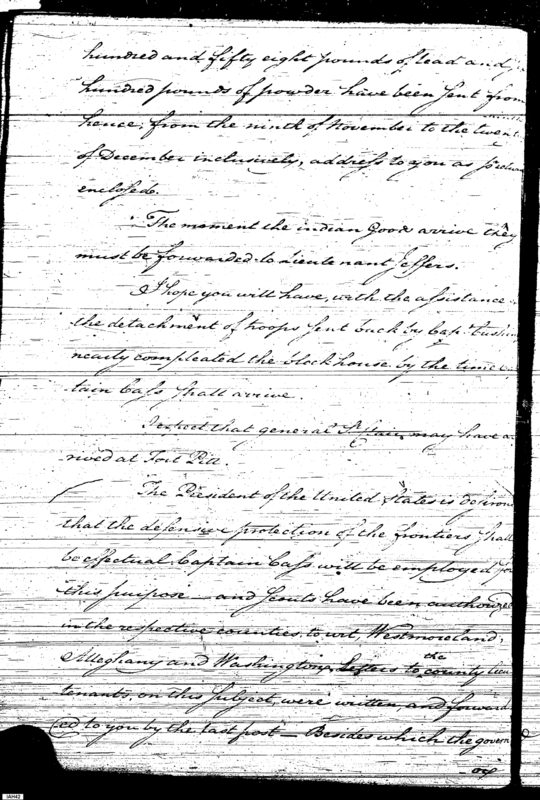 hundred and fifty eight pounds of lead and
hundred pounds of powder have been sent from
hence, from the ninth of November to the twent
of December inclusively, address to you as
enclosed.
The moment the indian Good arrive they
must be forwarded to Lieutenant Jeffers.
I hope you will have, with the assistance
the detachment of troops sent back by Capt Cushin
nearly compleated the block house by the time
tain Cass shall arrive.
I expect that general St Clair may have a
rived at Fort Pitt.
The President of the United States is desirous
that the defensive protection of the frontiers shall
be effectual. Captain Cass will be employed for
this purpose — and Scouts have been authorized
in the respective counties, to wit, Westmoreland,
Alleghany and Washington. Letters to the county lieu
tenants, on this subject, were written, and forward
ed to you by the last post — Besides which the govern
or
IAH42